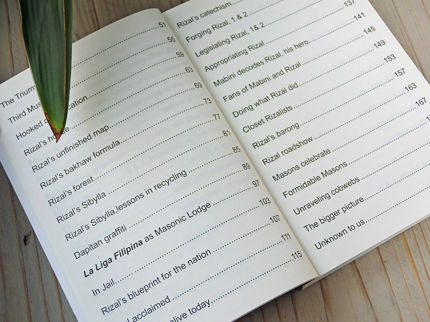 The Trium
Third 55
59
Rizal's 63
Rizal's unfinished map 69
Rizal's bakhaw formula 73
Rizal's forest 77
Rizal's Sibylla 81
Rizal's Sibylla lessons in recycling 85
Dapitan graffiti 89
La Liga Filipina as Masonic Lodge 97
In Jail 103
Rizal's blueprint for the nation 107
acclaimed 111
alive today 115
Rizal's catechism
Forging Rizal, 1 & 2
Legislating Rizal, 1 & 2
Appropriating Rizal 137
Mabini decodes Rizal, his hero 141
Fans of Mabini and Rizal 145
Doing what Rizal did 149
Closet Rizalists 153
Rizal's barong 157
Rizal roadshow 163
Masons celebrate
Formidable Masons
Unraveling cobwebs
The bigger picture
Unknown to us